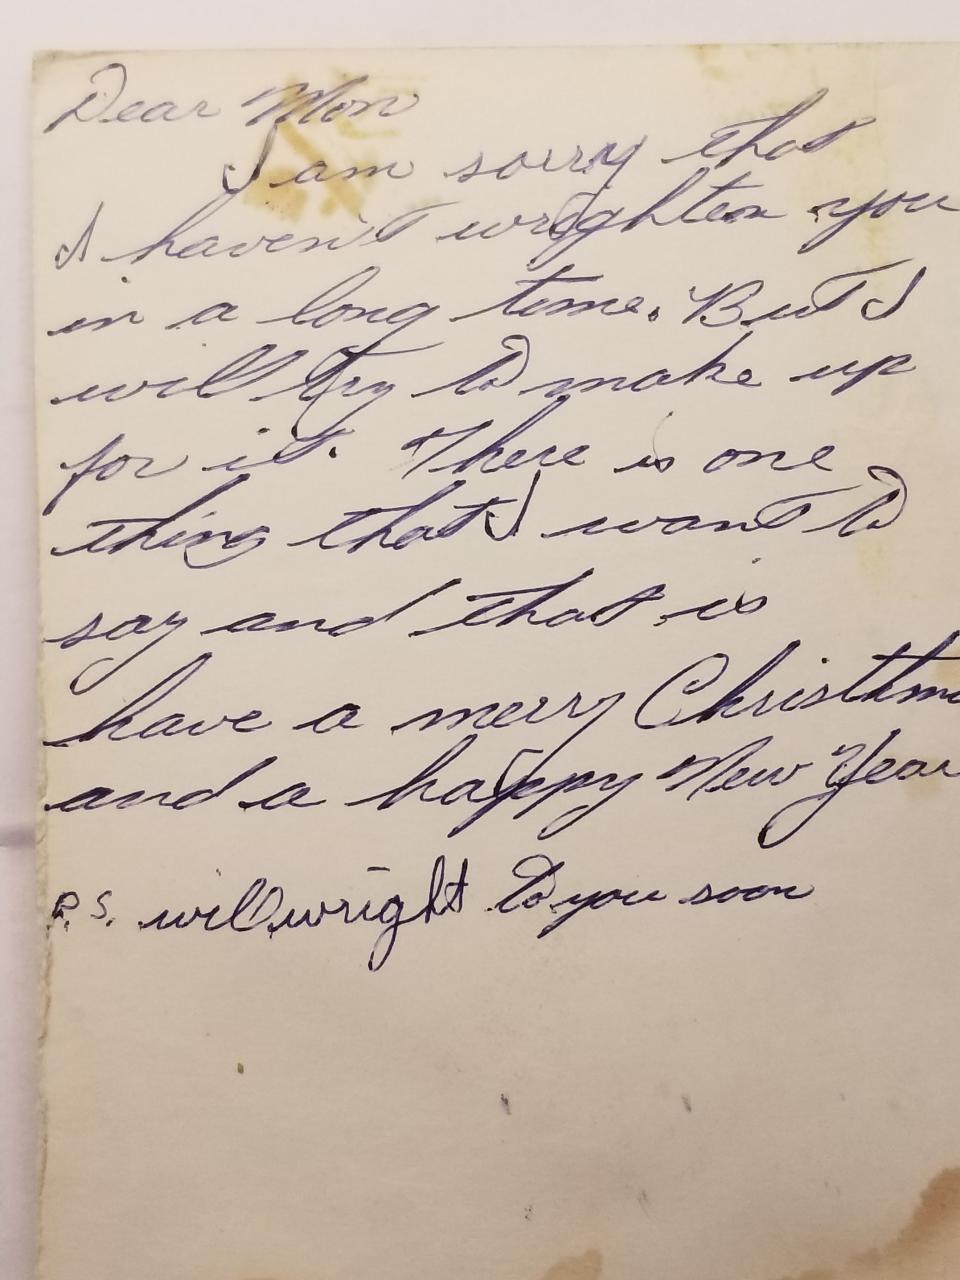 Dear Mom
I am sorry that
I haven't wrighten you
in a long time. But I
will try to make up
for it. There is one
thing that I want to
say and that is
have a merry Christma
and a happy New Year
P.S. will wright to you soon